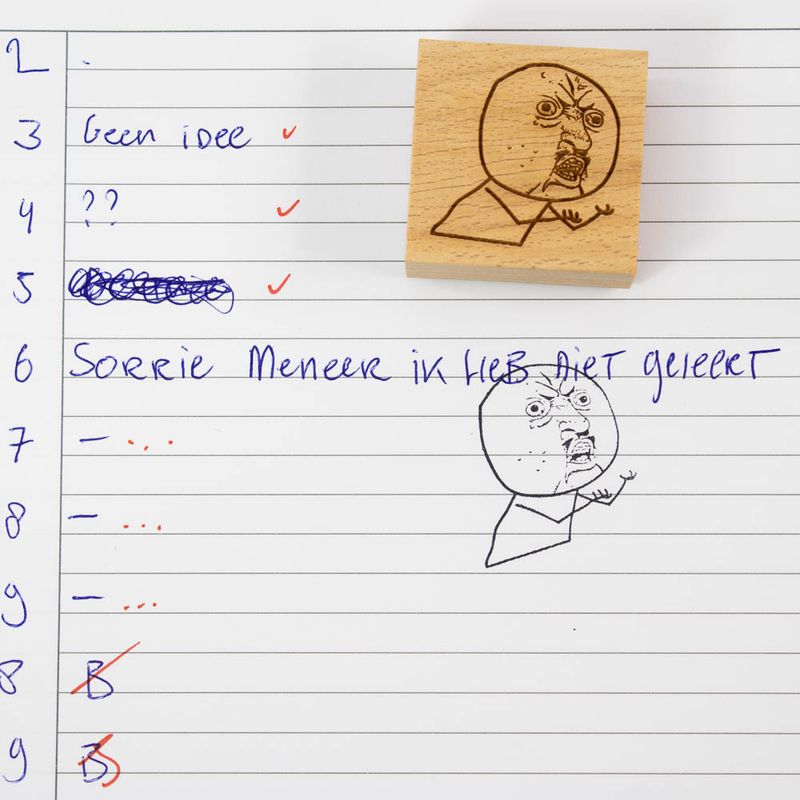 2 .
3 Geen idee ✓
4 ?? ✓
5 ✓
6 Sorrie Meneer ik HEB niet geleert
7 – ...
8 – ...
9 – ...
8 B
9 B